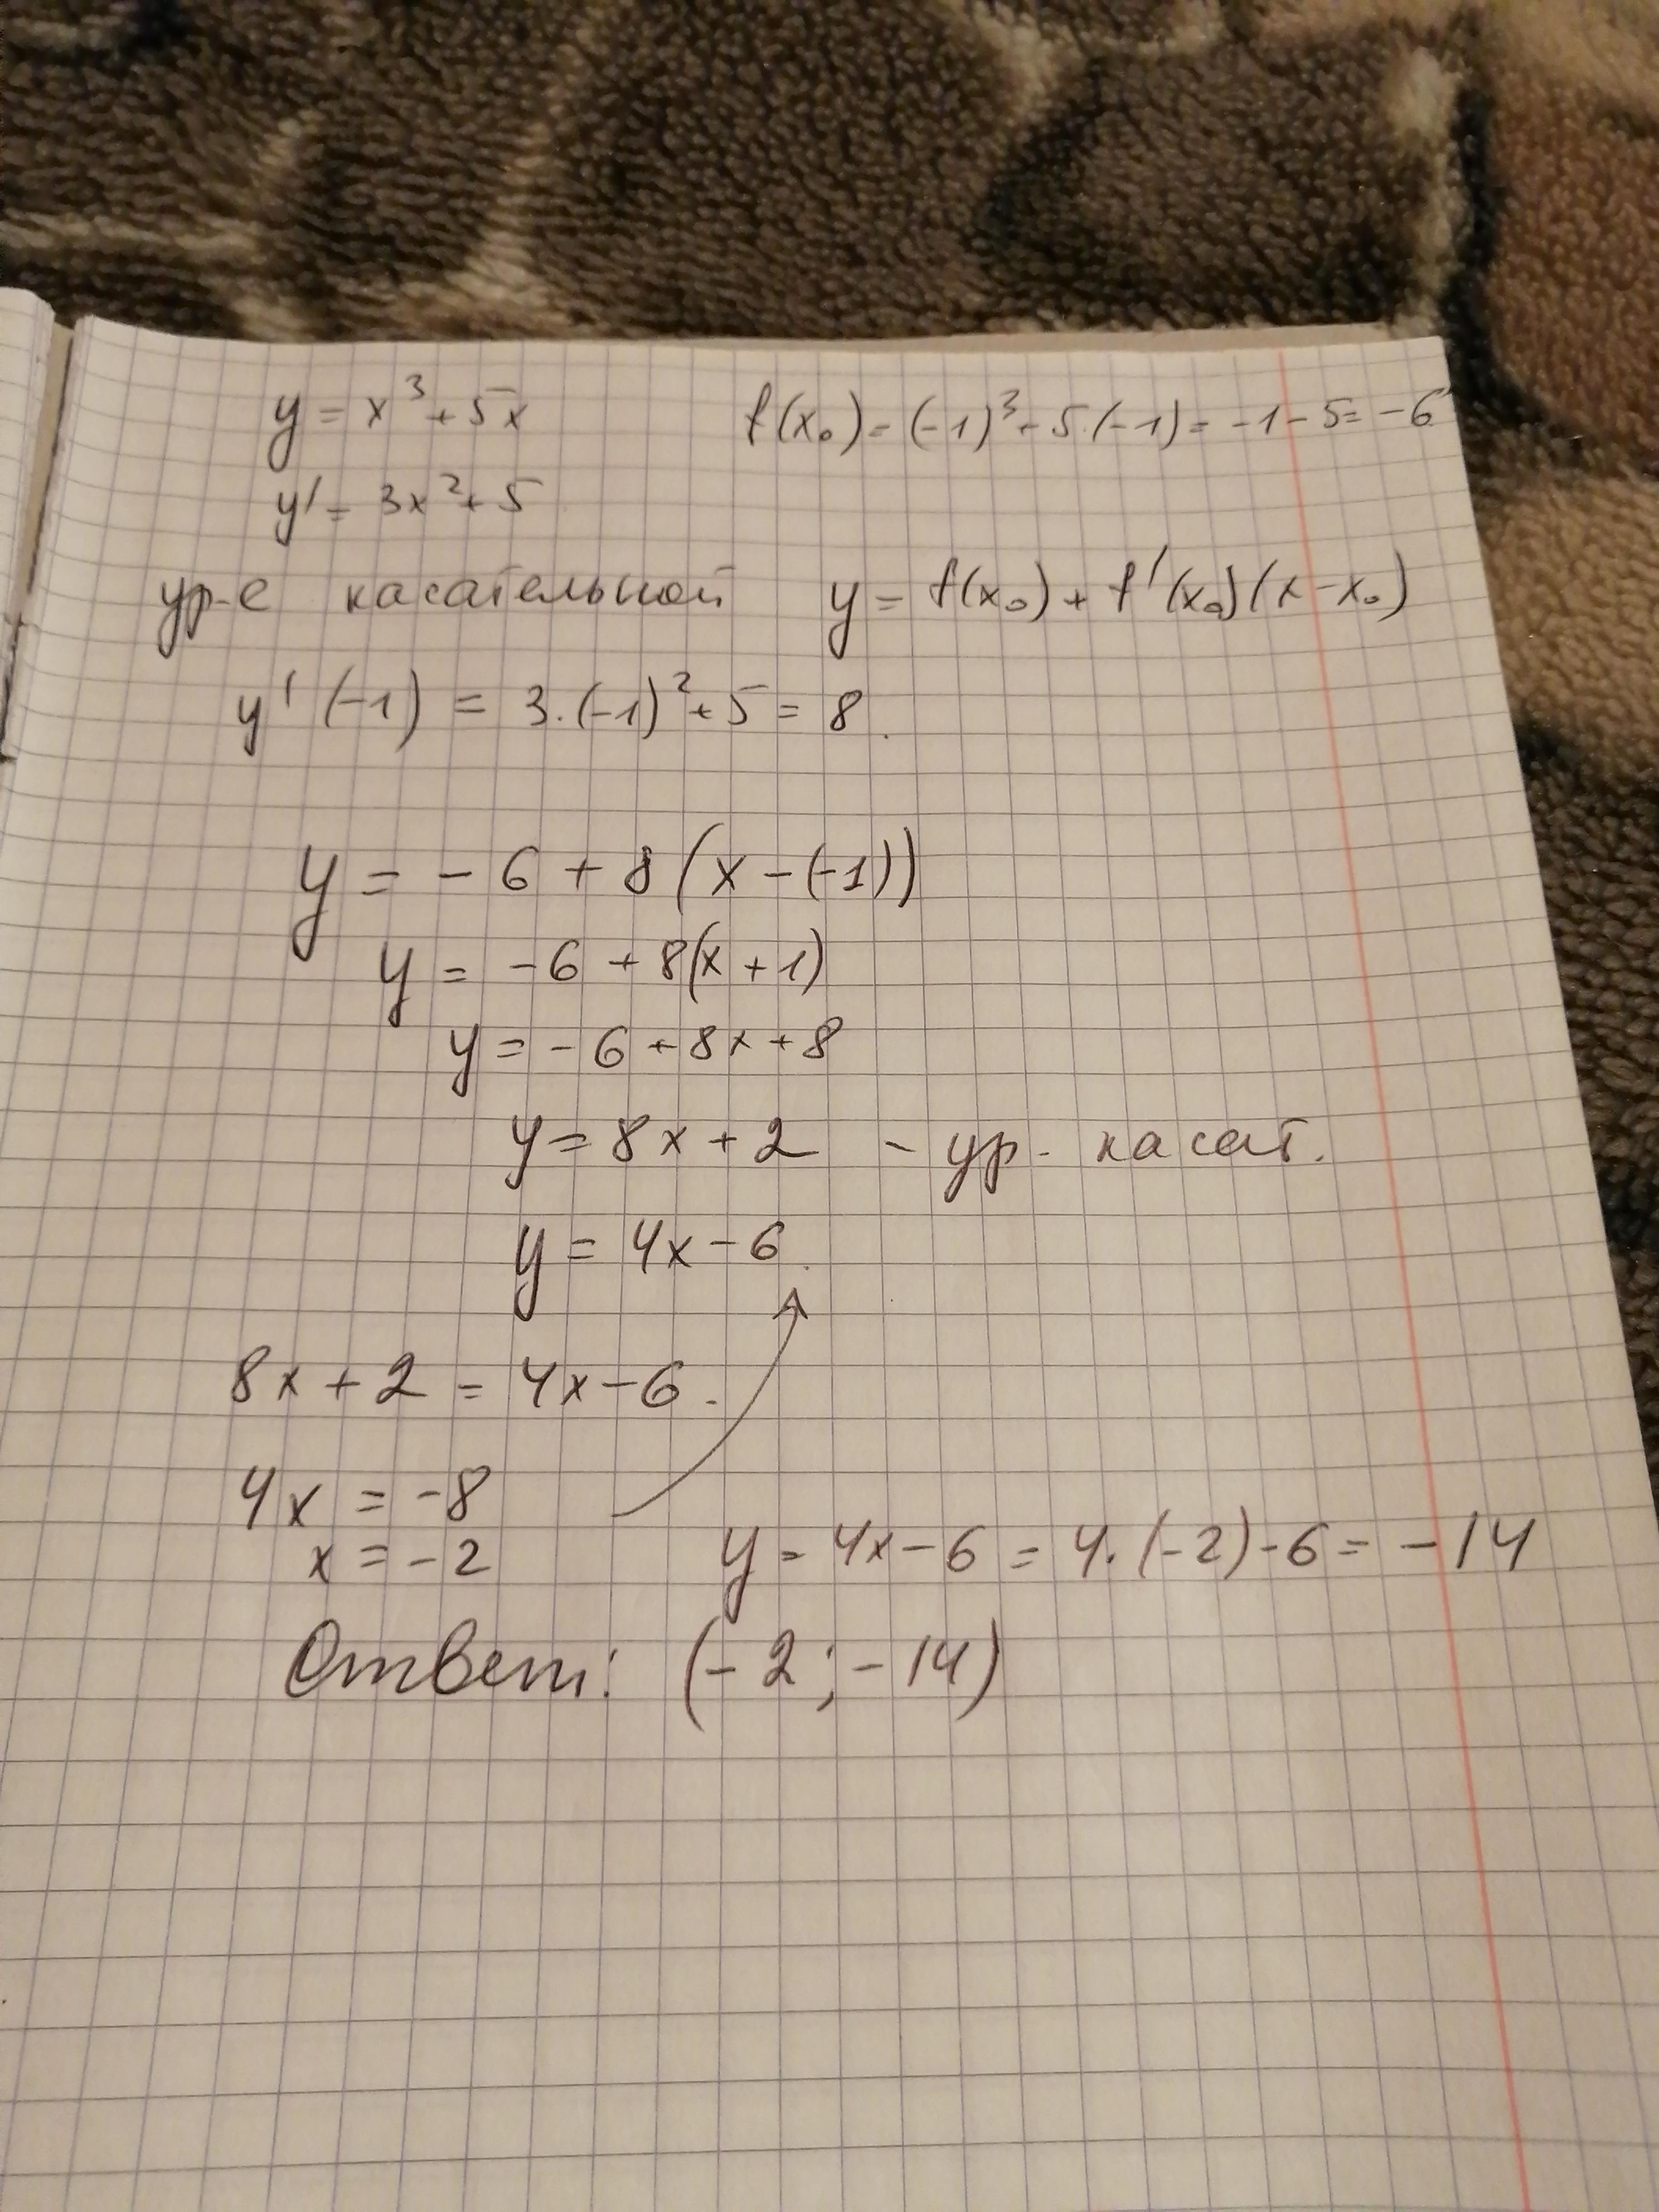 y = x³ + 5x f(x₀) = (-1)³ + 5·(-1) = -1 - 5 = -6
y' = 3x² + 5
ур-е касательной y = f(x₀) + f'(x₀)(x - x₀)
y'(-1) = 3·(-1)² + 5 = 8.
y = -6 + 8(x - (-1))
y = -6 + 8(x + 1)
y = -6 + 8x + 8
y = 8x + 2 - ур. касат.
y = 4x - 6.
8x + 2 = 4x - 6.
4x = -8
x = -2 y = 4x - 6 = 4·(-2) - 6 = -14
Ответ: (-2; -14)